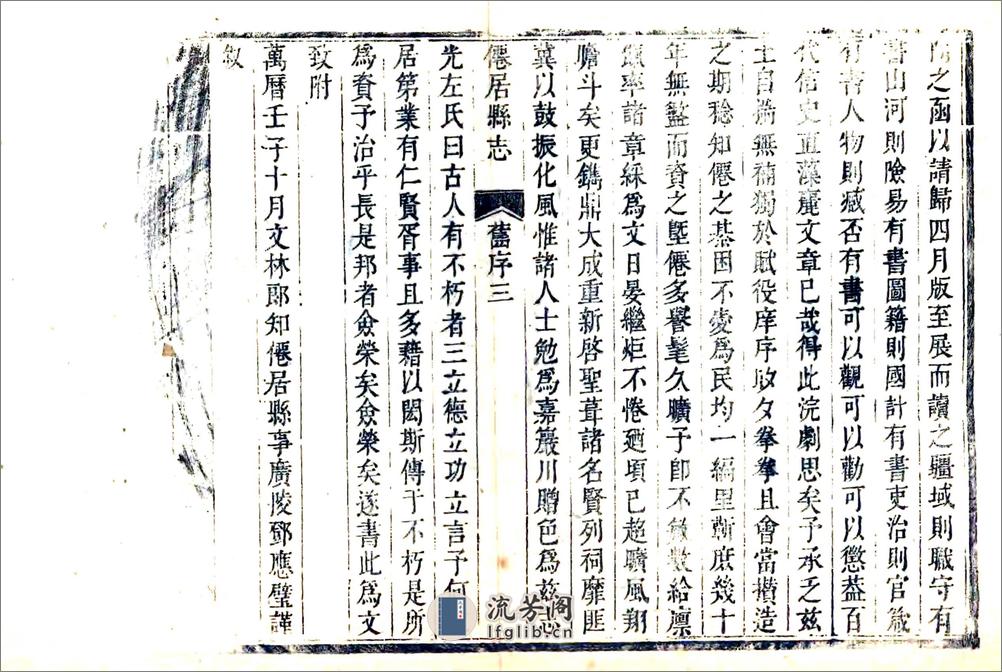 之函以請歸四月版至展而讀之疆域則職守有
書山河則險易有書圖籍則國計有書吏治則官箴
有書人物則臧否有書可以觀可以勸可以懲葢百
代信史直藻麗文章已哉得此浣劇思矣予承乏玆
土自耑無補獨於賦役庠序夙夕拳拳且會當攢造
之期稔知僊之綦困不㥄爲民均一編里蘄庶幾十
年無盭而賚之墍僊多譽髦久曠予卽不敏數給凛
率諸章綵爲文日晏繼炬不惓廼頃已超曠風翔
瞻斗矣更鐫鼎大成重新啓聖葺諸名賢列祠靡匪
冀以鼓振化風惟諸人士勉爲嘉巖川贈色爲玆
僊居縣志 舊序 三
光左氏曰古人有不朽者三立德立功立言予何
居第業有仁賢胥事且多藉以閎斯傳于不朽是所
爲賚予治平長是邦者僉榮矣僉榮矣遂書此爲文
致附
萬曆壬子十月文林郎知僊居縣事廣陵鄧應璧謹
敘
流芳阁
lfglib.cn